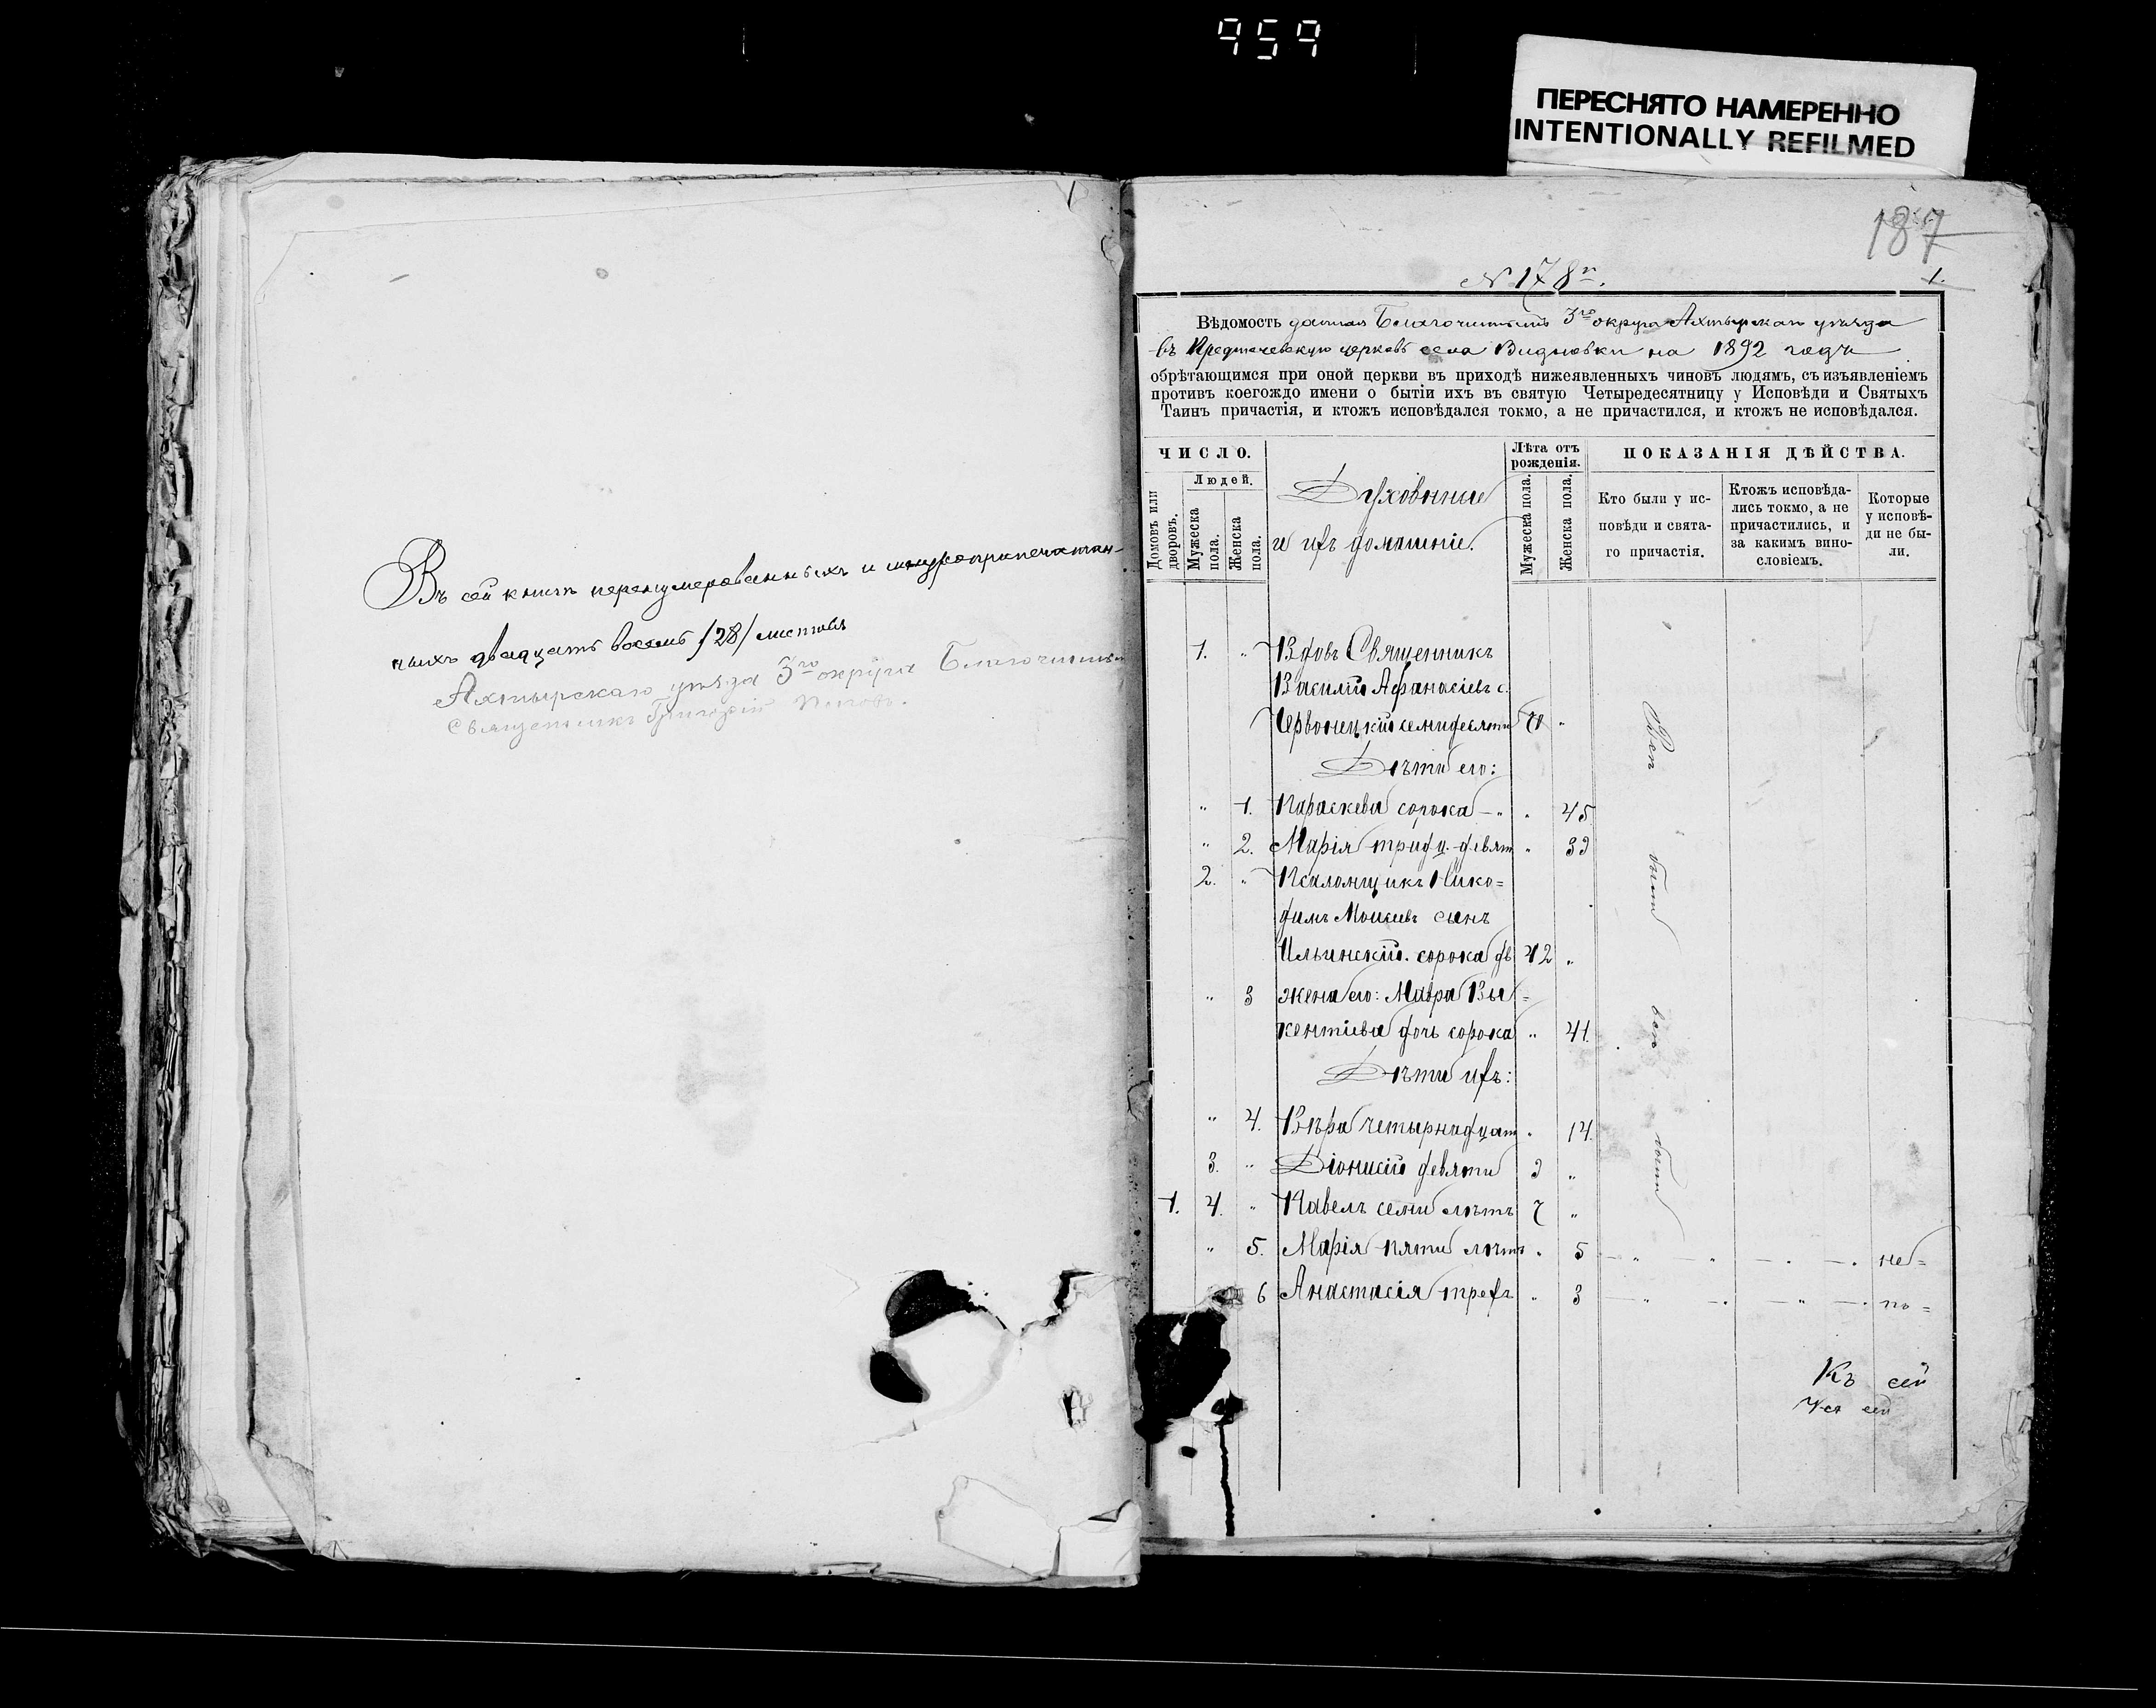 959
ПЕРЕСНЯТО НАМЕРЕННО
INTENTIONALLY REFILMED
Въ сей книгѣ перенумерованныхъ и шнуроприпечатан-
ныхъ двадцать восемь /28/ листовъ
Ахтырскаго уѣзда 3го округа Благочинный
Священникъ Григорій Поповъ.
187
№ 178й.
1.
Вѣдомость данная Благочиннымъ 3го округа Ахтырскаго уѣзда
въ Предтечевскую церковь села Видновки на 1892 годъ
обрѣтающимся при оной церкви въ приходѣ нижеявленныхъ чиновъ людямъ, съ изъявленіемъ
противъ коегождо имени о бытіи ихъ въ святую Четыредесятницу у Исповѣди и Святыхъ
Таинъ причастія, и ктожъ исповѣдался токмо, а не причастился, и ктожъ не исповѣдался.
ЧИСЛО.
Людей.
Домовъ или дворовъ.
Мужеска пола.
Женска пола.
Духовные
и ихъ домашніе.
Лѣта отъ рожденія.
Мужеска пола.
Женска пола.
ПОКАЗАНІЯ ДѢЙСТВА.
Кто были у исповѣди и святаго причастія.
Ктожъ исповѣдались токмо, а не причастились, и за какимъ винословіемъ.
Которые у исповѣди не были.
1. " Вдовъ Священникъ
Василій Афанасіевъ с.
Червонецкій семидесяти 70 "
Дѣти его:
" 1. Параскева сорока - " " 45
" 2. Марія тридц. девят " 39
2. " Псаломщикъ Нико=
димъ Моисеевъ сынъ
Ильинскій. сорока дв 42 "
" 3 жена его: Мавра Ви=
кентіева дочь сорока " 41.
Дѣти ихъ:
" 4. Вѣра четырнадцат " 14.
3. " Діонисій девяти 9 "
1. 4. " Павелъ семи лѣтъ 7 "
" 5. Марія пяти лѣтъ " 5 — " — " — . — . не=
6 Анастасія трехъ " 3 — " — . — " — . по=
Всѣ были всѣ были
Къ сей